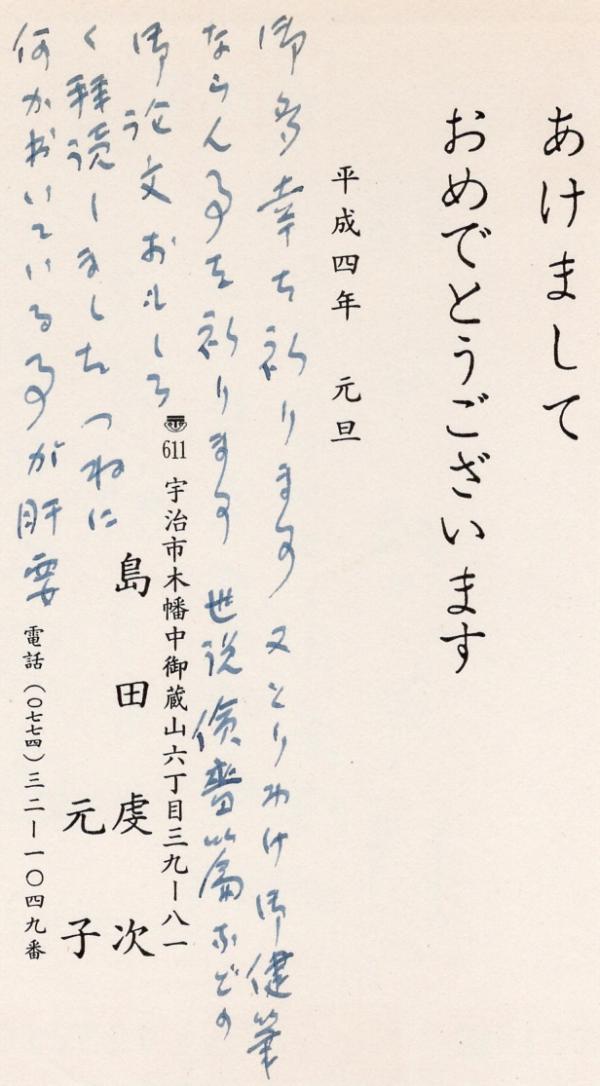 あけまして
おめでとうございます
平成四年 元旦
御多幸を祈ります 又とりわけ御健筆
ならん事を祈ります 世説儉嗇篇などの
御論文おもしろ
く拝読しました つねに
何か書いている事が肝要
〒611 宇治市木幡中御蔵山六丁目三九ー八一
島田虔次
元子
電話(〇七七四)三二ー一〇四九番